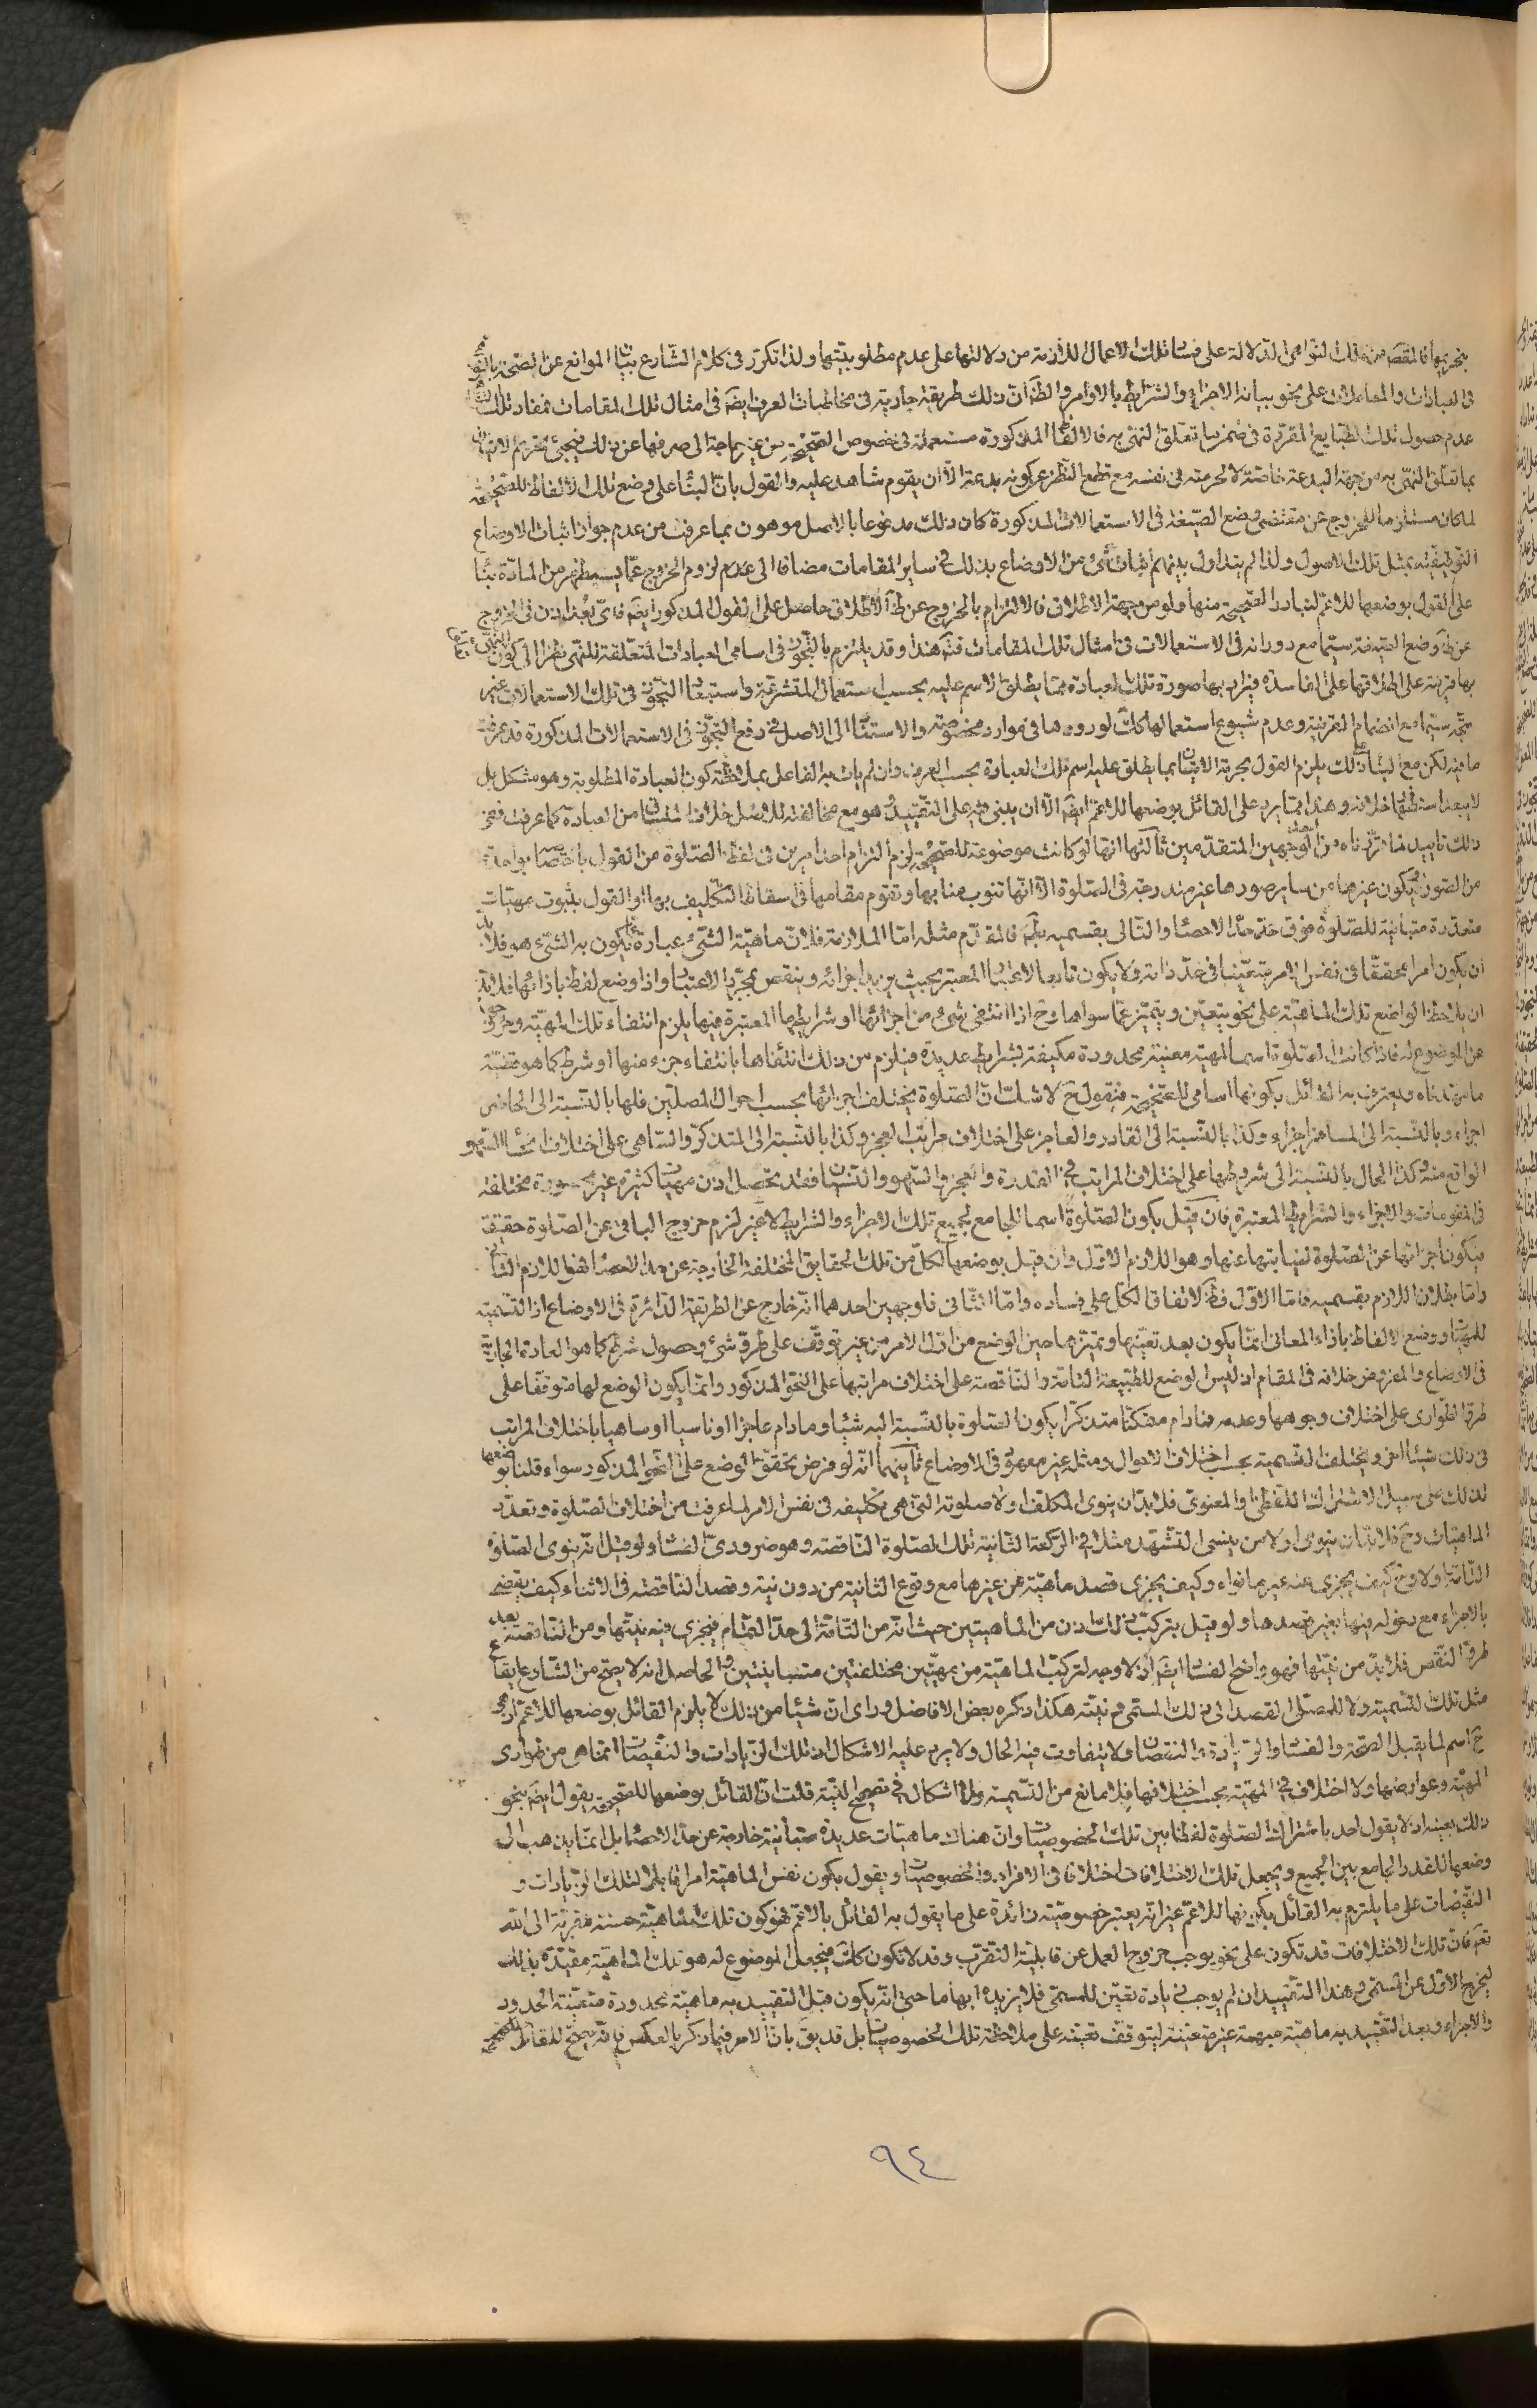 بتحريمها فالمقصود من تلك النواهي الدلالة على فساد تلك الاعمال اللازمة من دلالتها على عدم مطلوبيتها ولذا تكرر في كلام الشارع بيان الموانع عن الصحة بالنهي
في العبادات والمعاملات على نحو بيانه الاجزاء والشرايط بالاوامر والظ ان ذلك طريقة جارية في مخاطبات العرف ايضا في امثال تلك المقامات فمفاد تلك
عدم حصول تلك الطبايع المقررة في ضمن ما تعلق النهي به فالالفاظ المذكورة مستعملة في خصوص الصحيحة من غير حاجة الى صرفها عن ذلك فيجئ تحريم الاتيان
بما تعلق النهي به من جهة البدعة خاصة لا لحرمته في نفسه مع قطع النظر عن كونه بدعة الا ان يقوم شاهد عليه والقول بان البناء على وضع تلك الالفاظ للصحيحة
لما كان مستلزما للخروج عن مقتضى وضع الصيغة في الاستعمالات المذكورة كان ذلك مدفوعا بالاصل موهون بما عرفت من عدم جواز اثبات الاوضاع
التوقيفية بمثل تلك الاصول ولذا لم يتداول بينهم اثبات شئ من الاوضاع بذلك في ساير المقامات مضافا الى عدم لزوم الخروج عما يستظهر من المادة بناء
على القول بوضعها للاعم لتبادر الصحيحة منها ولو من جهة الاطلاق فالالتزام بالخروج عن ظ الاطلاق حاصل على القول المذكور ايضا فاي بعد اذن في الخروج
عن ظ وضع الصيغة سيما مع دورانه في الاستعمالات في امثال تلك المقامات فت هذا وقد يلتزم بالتجوز في اسامي العبادات المتعلقة للنهي نظرا الى كون النهي المتعلق
بها قرينة على اطلاقها على الفاسدة فيراد بها صورة تلك العبادة مما يطلق الاسم عليه بحسب استعمال المتشرعة واستبعاد التجوز في تلك الاستعمالات غير
متجه سيما مع انضمام القرينة وعدم شيوع استعمالها كك لورودها في موارد مخصوصة والاستناد الى الاصل في دفع التجوز في الاستعمالات المذكورة قد عرفت
ما فيه لكن مع البناء على ذلك يلزم القول بحرمة الاتيان بما يطلق عليه اسم تلك العبادة بحسب العرف وان لم يات به الفاعل بملاحظة كون العبادة المطلوبة وهو مشكل بل
لا يبعد استظهار خلافه وهذا مما يرد على القائل بوضعها للاعم ايضا الا ان يبنى فيه على التقييد وهو مع مخالفته للاصل خلاف المنساق من العبادة كما عرفت ففي
ذلك تاييد لما قررناه من الوجهين المتقدمين ثالثها انها لو كانت موضوعة للصحيحة لزم التزام احد امرين في لفظ الصلوة من القول باختصاصها بواحدة
من الصور فيكون غيرها من ساير صورها غير مندرجة في الصلوة الا انها تنوب منابها وتقوم مقامها في اسقاط التكليف بها او القول بثبوت مهيات
متعددة متباينة للصلوة فوق حد الاحصاء والتالي بقسميه بط فالمقدم مثله اما الملازمة فلان ماهية الشئ عبارة عما يكون به الشئ هو فلا بد
ان يكون امرا محققا في نفس الامر متعينا في حد ذاته ولا يكون تابعا لاعتبار المعتبر بحيث يزيد اجزائه وينقص بمجرد الاعتبار واذا وضع لفظ بازائها فلا بد
ان يلاحظ الواضع تلك الماهية على نحو يتعين ويتميز عما سواها وح اذا انتفى شئ من اجزائها او شرايطها المعتبرة فيها يلزم انتفاء تلك المهية وخروجها
عن الموضوع له فاذا كانت الصلوة اسما لمهية معينة محدودة مكيفة بشرايط عديدة فيلزم من ذلك انتفاءها بانتفاء جزء منها او شرط كما هو قضية
ما مهدناه ويعترف به القائل بكونها اسامي للصحيحة فنقول ح لا شك ان الصلوة يختلف اجزائها بحسب احوال المصلين فلها بالنسبة الى الحاضر
اجزاء وبالنسبة الى المسافر اجزاء وكذا بالنسبة الى القادر والعاجز على اختلاف مراتب العجز وكذا بالنسبة الى المتذكر والساهي على اختلاف انحاء السهو
الواقع منه وكذا الحال بالنسبة الى شروطها على اختلاف المراتب في القدرة والعجز والسهو والنسيان فقد تحصل اذن مهيات كثيرة غير محصورة مختلفة
في المقومات والاجزاء والشرايط المعتبرة فان قيل بكون الصلوة اسما للجامع لجميع تلك الاجزاء والشرايط لا غير لزم خروج الباقي عن الصلوة حقيقة
فيكون اجزائها عن الصلوة لنيابتها عنها وهو اللازم الاول وان قيل بوضعها لكل من تلك الحقايق المختلفة الخارجة عن حد الاحصاء فهو اللازم الثاني
واما بطلان اللازم بقسميه فاما الاول فظ لاتفاق الكل على فساده واما الثاني فلوجهين احدهما انه خارج عن الطريقة الدائرة في الاوضاع اذ التسمية
للمهيات ووضع الالفاظ بازاء المعاني انما يكون بعد تعينها وتميزها حين الوضع من اول الامر من غير توقف على طرو شئ وحصول شرط كما هو العادة الجارية
في الاوضاع والمفروض خلافه في المقام اذ ليس الوضع للطبيعة التامة والناقصة على اختلاف مراتبها على النحو المذكور وانما يكون الوضع لها متوقفا على
طرو الطواري على اختلاف وجوهها وعدمه فمادام متمكنا متذكرا يكون الصلوة بالنسبة اليه شيئا ومادام عاجزا او ناسيا او ساهيا باختلاف المراتب
في ذلك شيئا اخر ويختلف التسمية بحسب اختلاف الاحوال ومثله غير معهود في الاوضاع ثانيهما انه لو فرض تحقق الوضع على النحو المذكور سواء قلنا بوضعها
لذلك على سبيل الاشتراك اللفظي او المعنوي فلا بد ان ينوي المكلف اولا صلوته التي هي تكليفه في نفس الامر لما عرفت من اختلاف الصلوة وتعدد
الماهيات وح فلا بد ان ينوي اولا من ينسى التشهد مثلا في الركعة الثانية تلك الصلوة الناقصة وهو ضروري الفساد ولو قيل انه ينوي الصلوة
التامة اولا وح كيف يجزي عنه غير ما نواه وكيف يجزي قصد ماهية عن غيرها مع وقوع الثانية من دون نية وقصد الناقصة في الاثناء كيف يقضي
بالاجزاء مع دخوله فيها بغير قصدها ولو قيل بتركب ذلك اذن من الماهيتين حيث انه من التامة الى حد التمام فيجزي فيه نيتها ومن الناقصة بعد
طرو النقص فلا بد من نيتها فهو واضح الفساد ايضا اذ لا وجه لتركب الماهية من مهيتين مختلفتين متباينتين والحاصل انه لا يصح من الشارع ايقاع
مثل تلك التسمية ولا للمصلي القصد الى ذلك المسمى في نيته هكذا ذكره بعض الافاضل وراى ان شيئا من ذلك لا يلزم القائل بوضعها للاعم اذ هو
ح اسم لما يقبل الصحة والفساد والزيادة والنقصان ولا يتفاوت فيه الحال ولا يرد عليه الاشكال اذ تلك الزيادات والنقيصات انما هي من طواري
المهية وعوارضها ولا اختلاف في المهية بحسب اختلافها فلا مانع من التسمية ولا اشكال في تصحيح النية قلت ان القائل بوضعها للصحيحة يقول ايضا بنحو
ذلك بعينه اذ لا يقول احد باشتراك الصلوة لفظا بين تلك الخصوصيات وان هناك ماهيات عديدة متباينة خارجة عن حد الاحصاء بل انما يذهب الى
وضعها للقدر الجامع بين الجميع ويجعل تلك الاختلافات اختلافا في الافراد والخصوصيات ويقول بكون نفس الماهية امرا قابلا لتلك الزيادات و
النقيصات على ما يلتزم به القائل بكونها للاعم غير انه يعتبر خصوصية زائدة على ما يقول به القائل بالاعم فهو كون تلك الماهية حسنة مقربة الى الله
تعم فان تلك الاختلافات قد تكون على نحو يوجب خروج العمل عن قابلية التقرب وقد لا تكون كك فيجعل الموضوع له هو تلك الماهية مقيدة بذلك
ليخرج الاول عن المسمى وهذا التقييد ان لم يوجب زيادة تعين للمسمى فلا يزيده ابهاما حتى انه يكون قبل التقييد به ماهية محدودة متعينة الحدود
والاجزاء وبعد التقييد به ماهية مبهمة غير متعينة ليتوقف تعينه على ملاحظة تلك الخصوصيات بل قد يق بان الامر فيما ذكر بالعكس فانه يصح للقائل بالصحيحة
٩٤